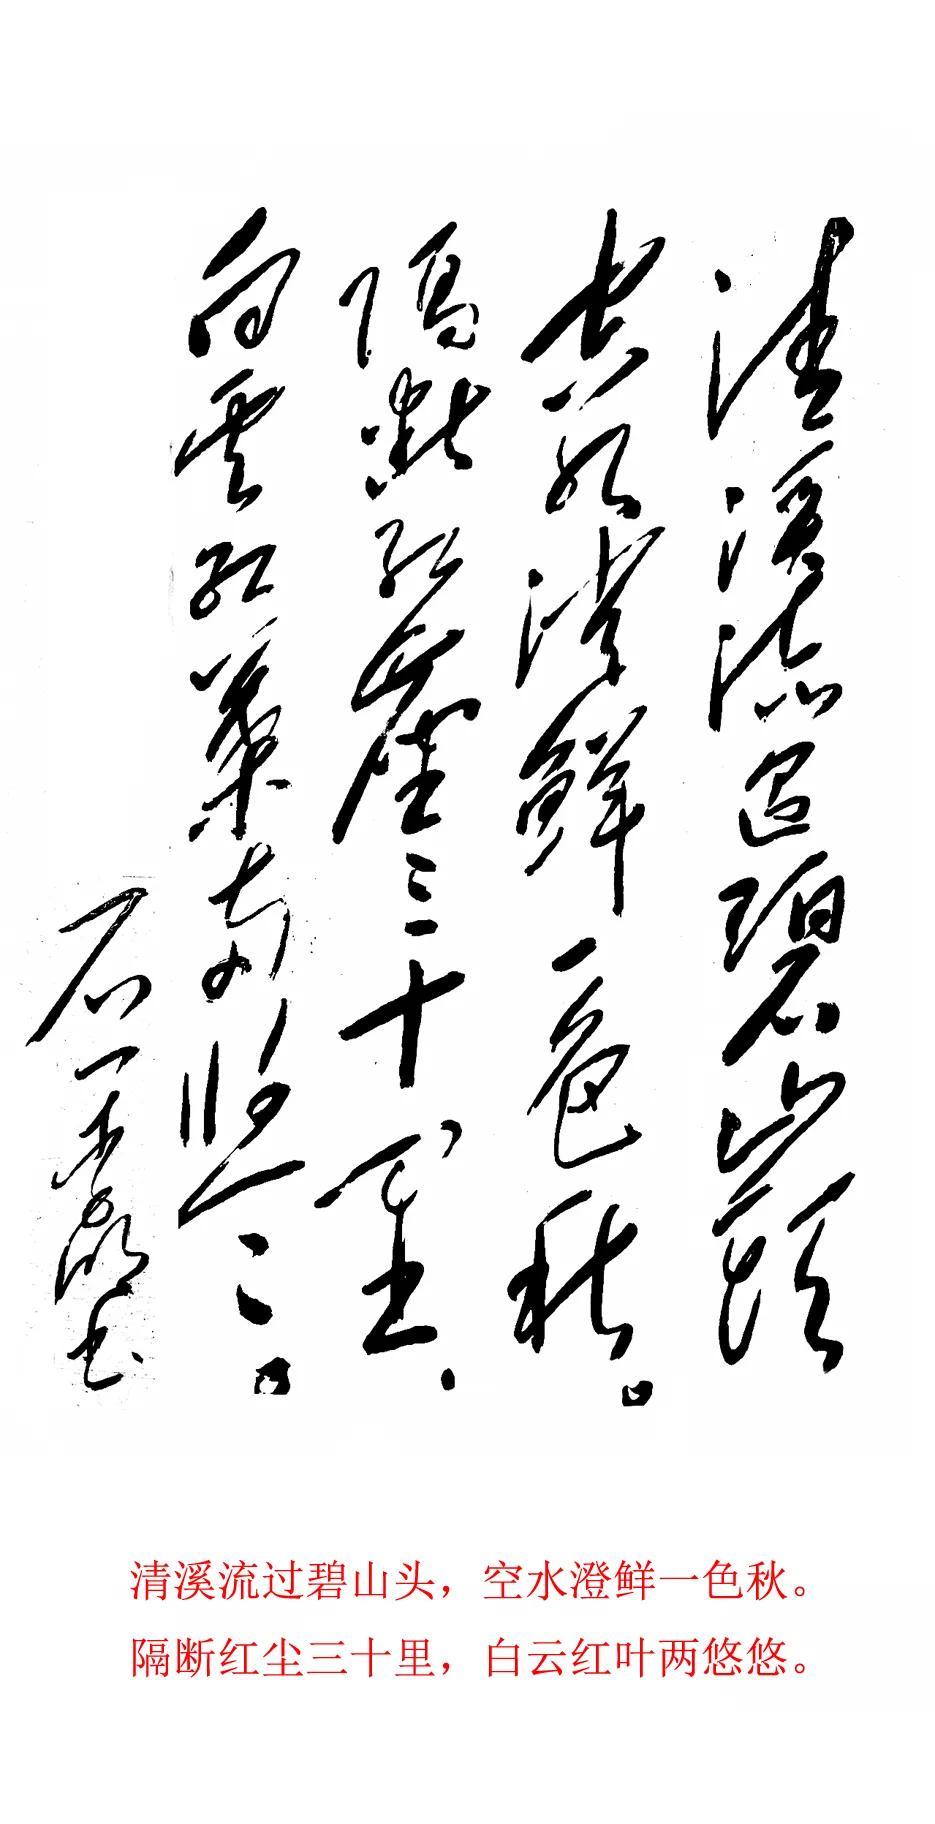 清溪流过碧山頭
空水澄鮮一色秋。
隔斷红塵三十里、
白雲红葉两悠〻。
清溪流过碧山头，空水澄鲜一色秋。
隔断红尘三十里，白云红叶两悠悠。